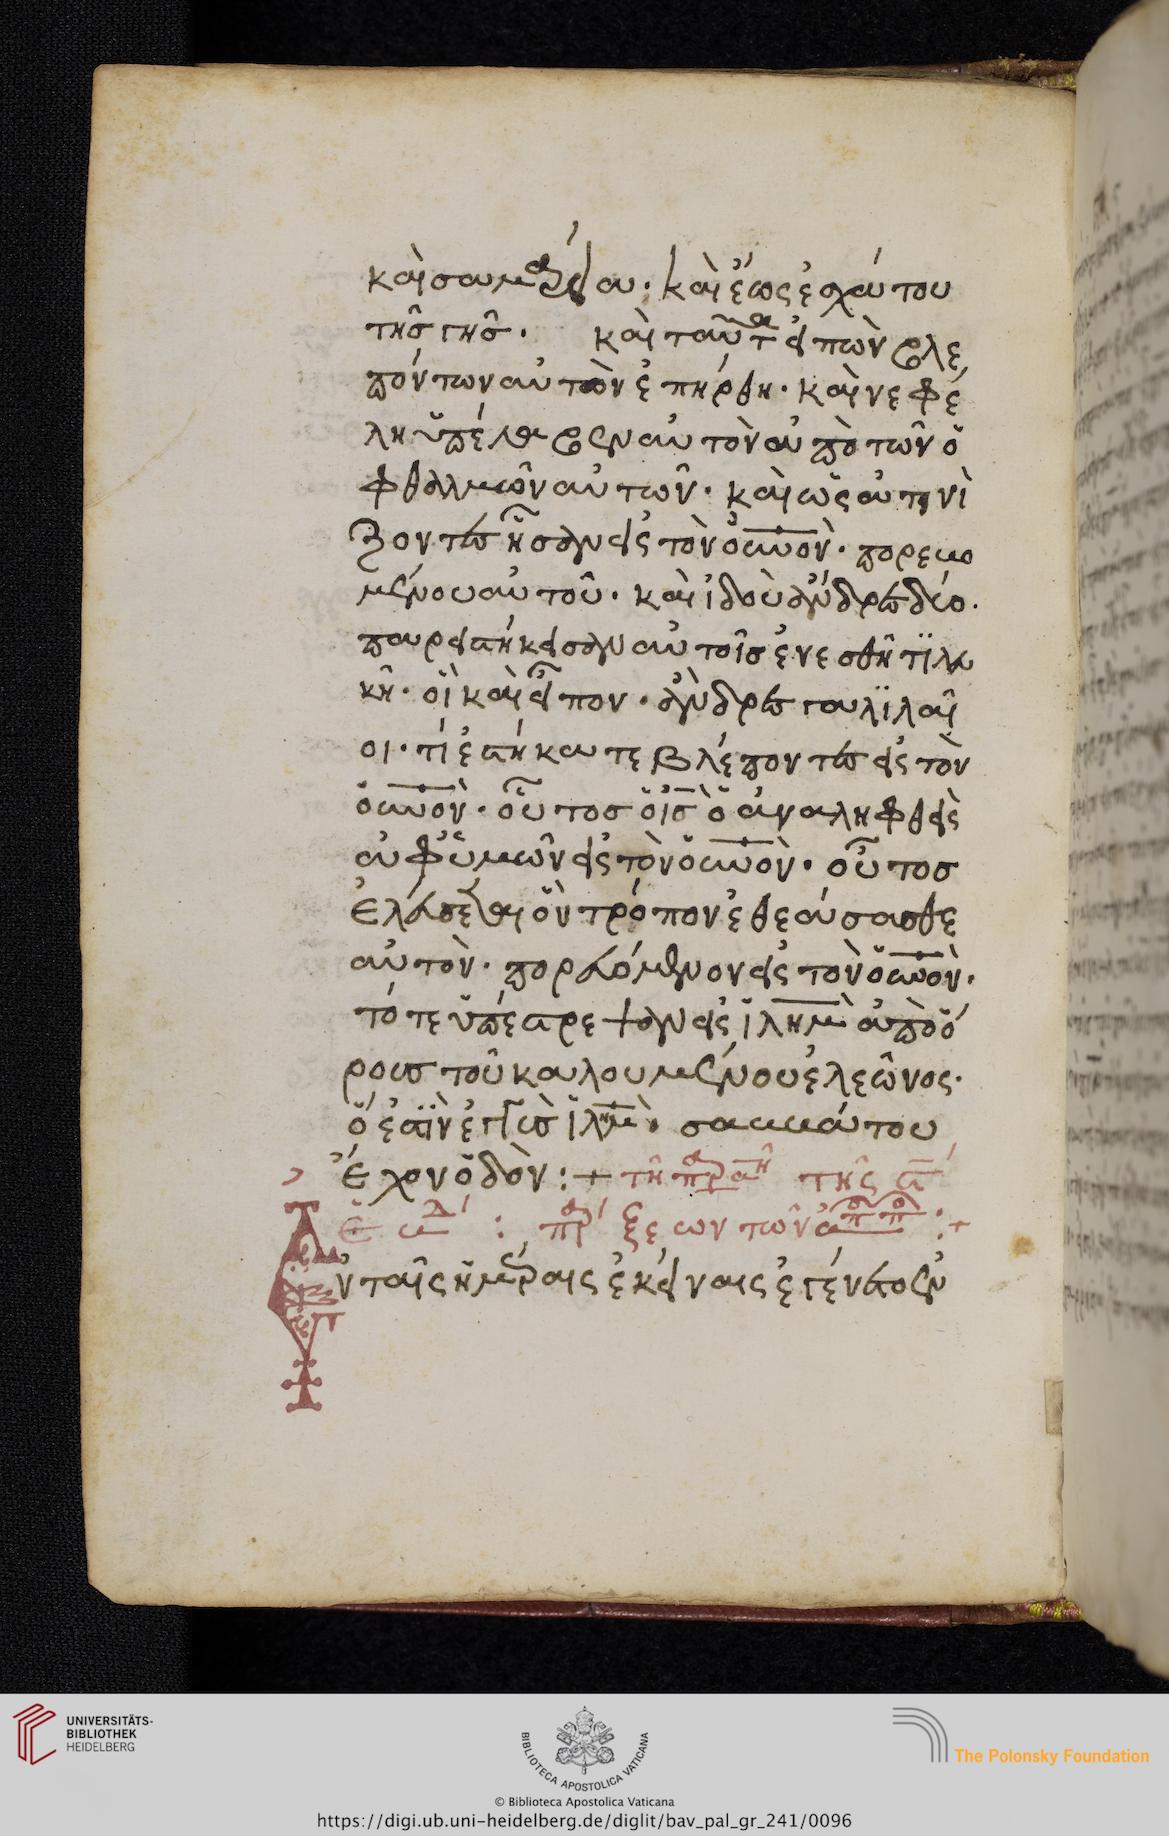 καὶ σαμαρεία· καὶ ἕως ἐσχάτου
τῆς γῆς· καὶ ταῦτα εἰπὼν βλε
πόντων αὐτῶν ἐπήρθη· καὶ νεφέ
λη ὑπέλαβεν αὐτὸν ἀπὸ τῶν ὀ
φθαλμῶν αὐτῶν· καὶ ὡς ἀτενὶ
ζοντες ἦσαν εἰς τὸν οὐνὸν· πορευο
μένου αὐτοῦ· καὶ ἰδοὺ ἄνδρες δύο·
παρειστήκεισαν αὐτοῖς ἐν ἐσθῆτι λευ
κῆ· οἳ καὶ εἶπον· ἄνδρες γαλιλαῖ
οι· τί ἑστήκατε βλέποντες εἰς τὸν
οὐνὸν· οὗτος ὁ ἰς ὁ ἀναληφθεὶς
ἀφ' ὑμῶν εἰς τὸν οὐνὸν· οὗτος
ἐλεύσεται ὃν τρόπον ἐθεάσασθε
αὐτὸν· πορευόμενον εἰς τὸν οὐνὸν·
τότε ὑπέστρεψαν εἰς ἱλημ ἀπὸ ὄ
ρους τοῦ καλουμένου ἐλεῶνος·
ὅ ἐστιν ἐγγὺς ἱλημ· σαββάτου
ἔχον ὁδὸν :+ τῆ πρα τῆς α
πρ ξεων τῶν αππ :+
Ἐν ταῖς ἡμέραις ἐκείναις ἐγένετο ἐν
UNIVERSITÄTS-
BIBLIOTHEK
HEIDELBERG
BIBLIOTECA APOSTOLICA VATICANA
The Polonsky Foundation
© Biblioteca Apostolica Vaticana
https://digi.ub.uni-heidelberg.de/diglit/bav_pal_gr_241/0096